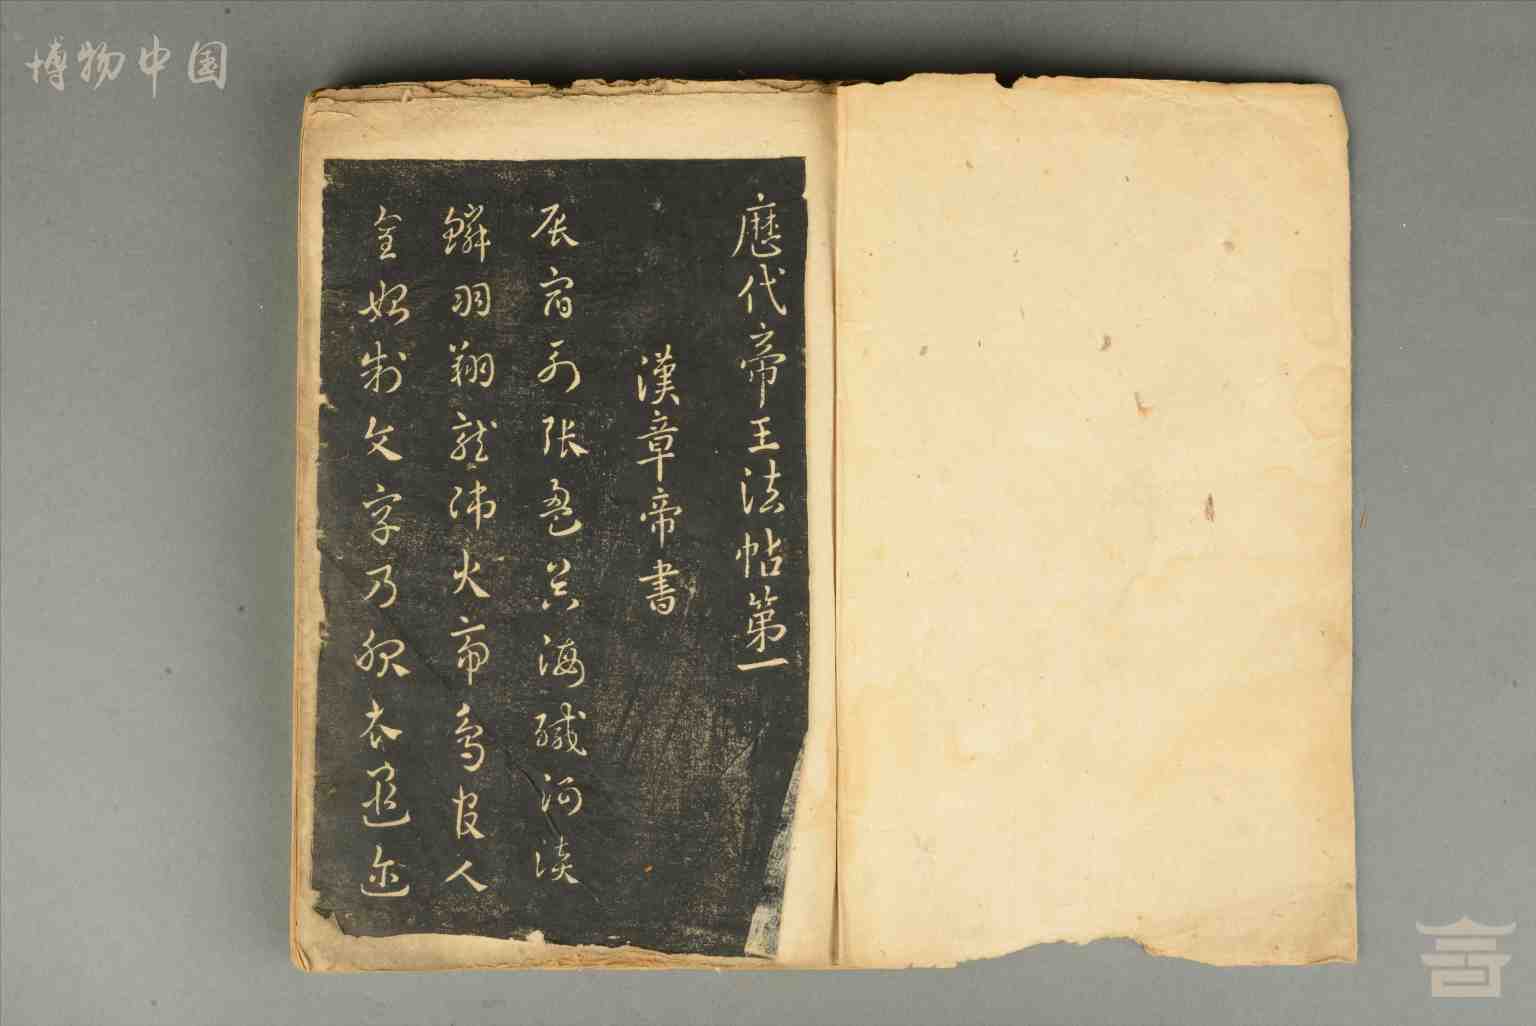 博物中国
歷代帝王法帖第一
漢章帝書
辰宿列張海鹹河淡
鱗羽翔龍師火帝鳥官人
皇始制文字乃服衣遐邇